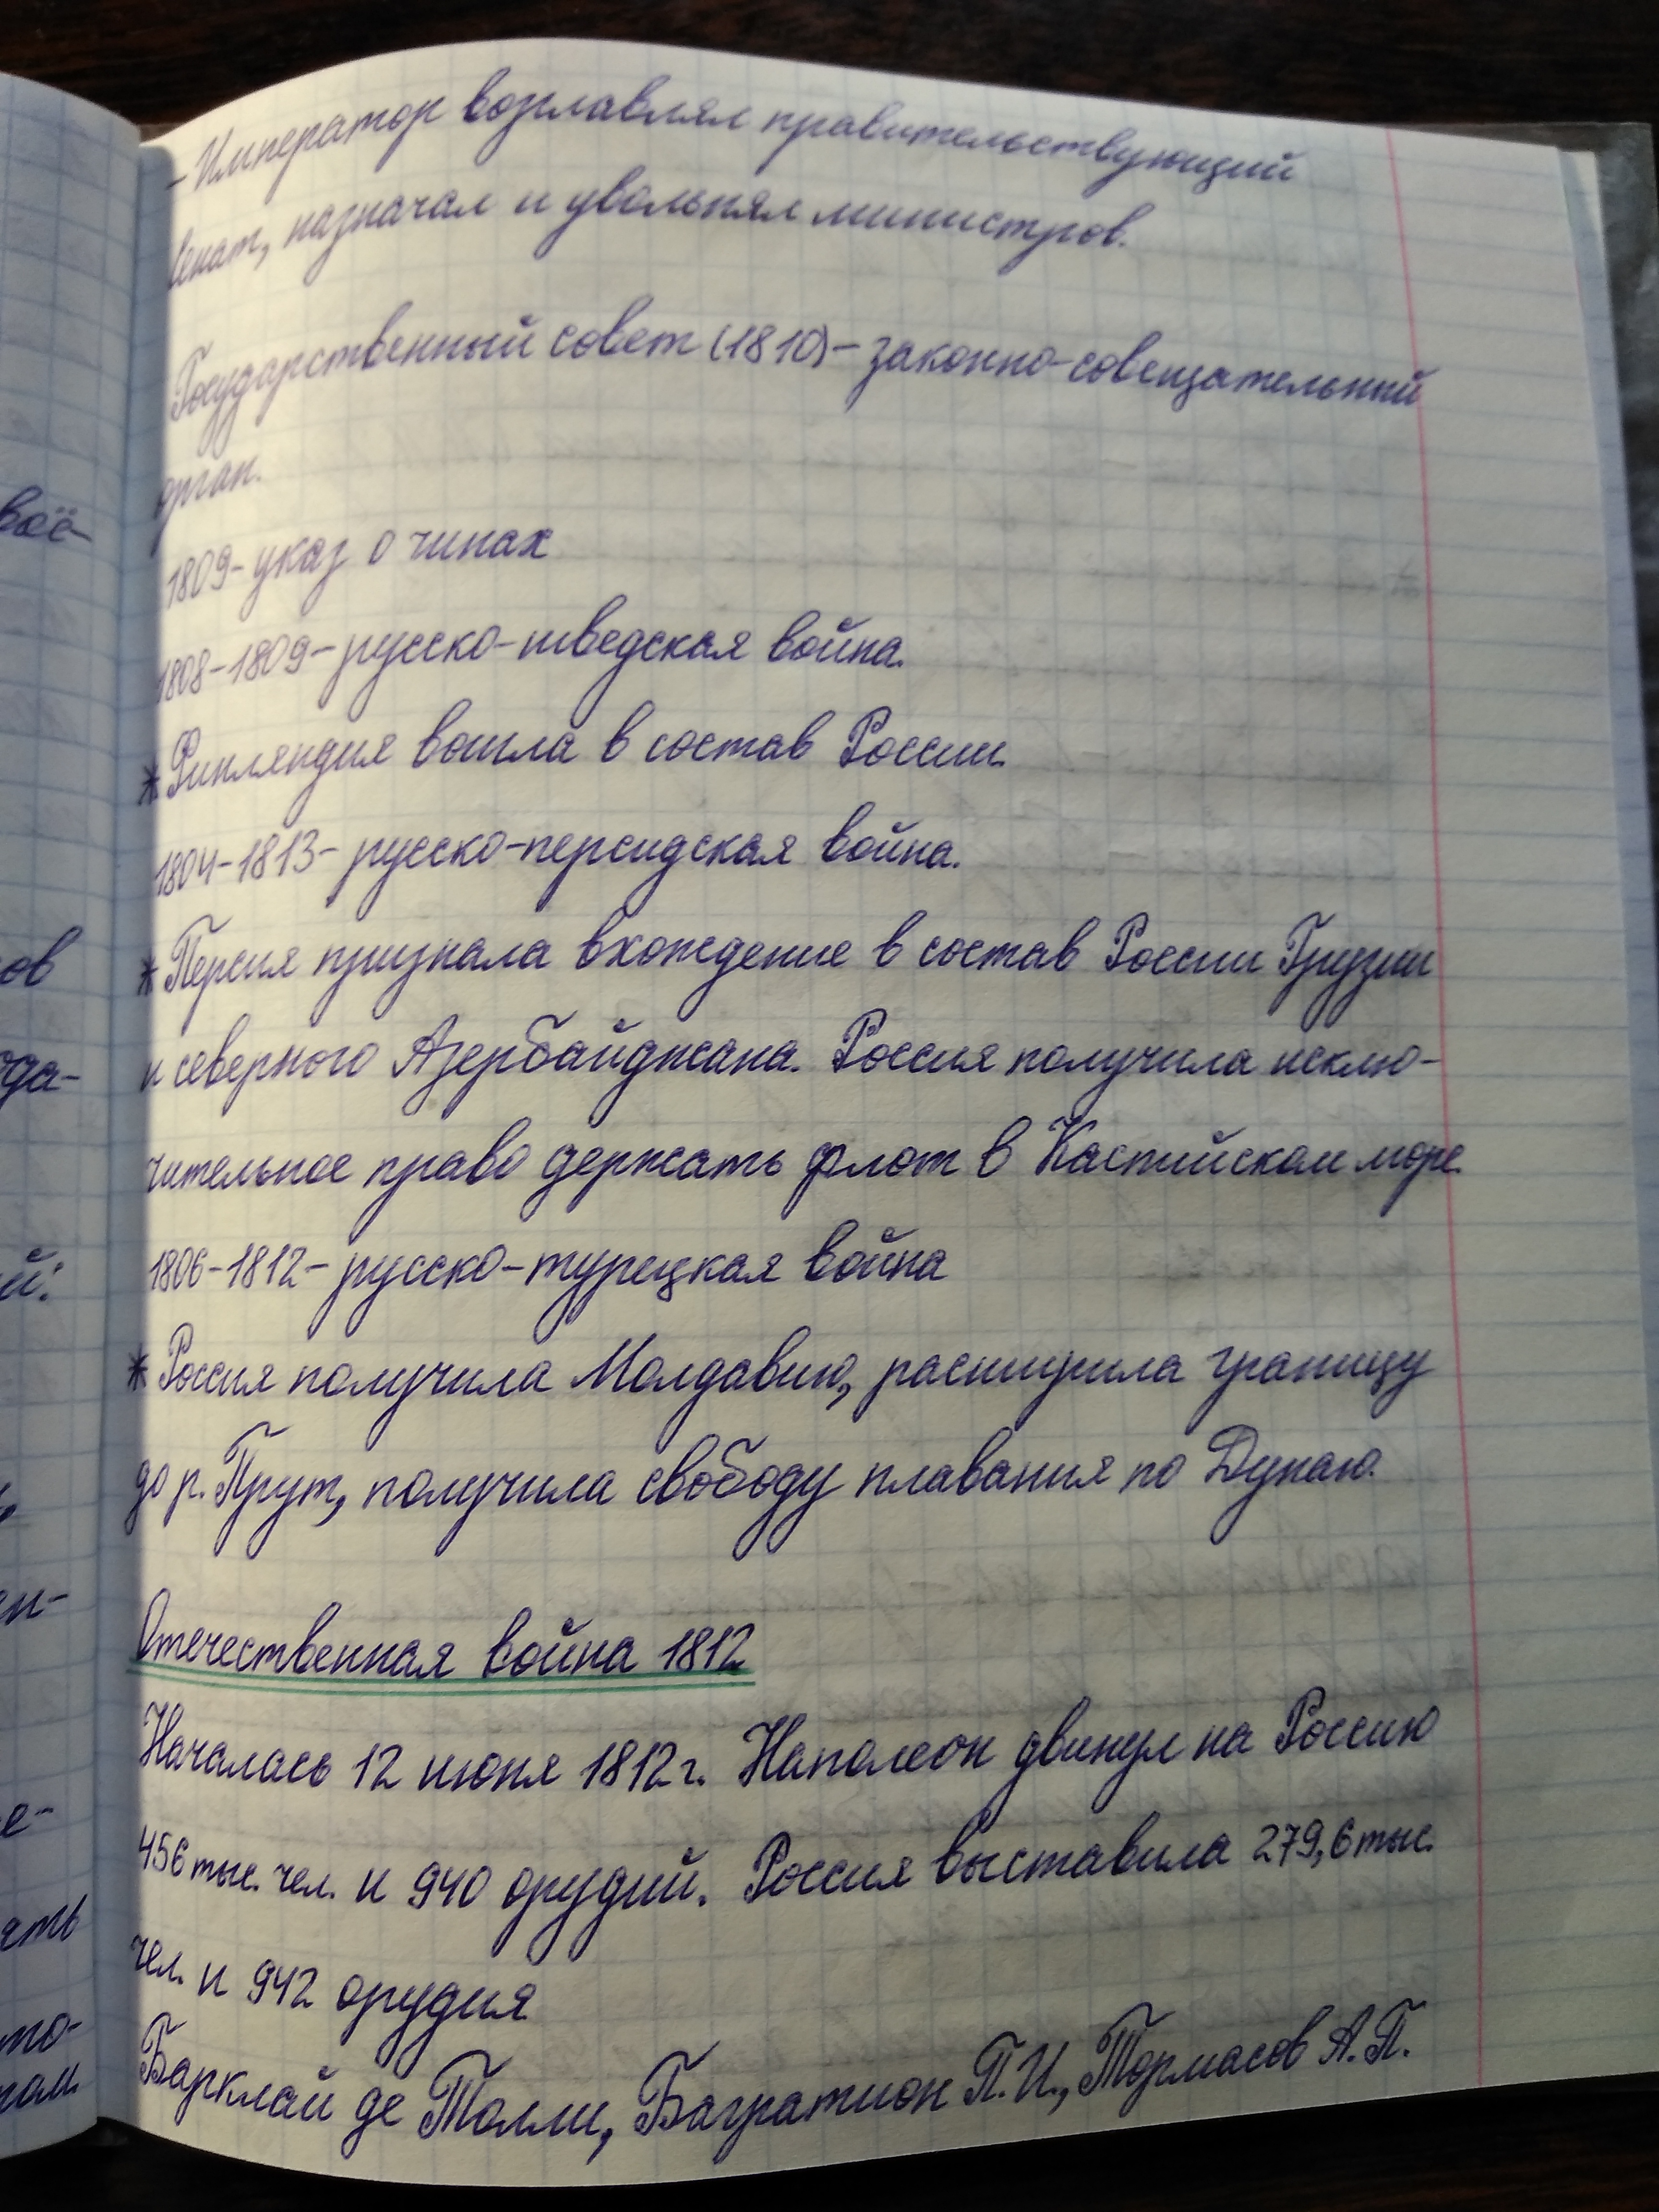 - Император возглавлял правительствующий
Сенат, назначал и увольнял министров.
Государственный совет (1810) - законно-совещательный
орган.
1809 - указ о чинах
1808-1809 - русско-шведская война.
* Финляндия вошла в состав России.
1804-1813 - русско-персидская война.
* Персия признала вхождение в состав России Грузии
и северного Азербайджана. Россия получила исклю-
чительное право держать флот в Каспийском море.
1806-1812 - русско-турецкая война
* Россия получила Молдавию, расширила границу
до р. Прут, получила свободу плавания по Дунаю.
Отечественная война 1812
Началась 12 июня 1812 г. Наполеон двинул на Россию
456 тыс. чел. и 940 орудий. Россия выставила 279,6 тыс.
чел. и 942 орудия
Барклай де Толли, Багратион П.И., Тормасов А.П.